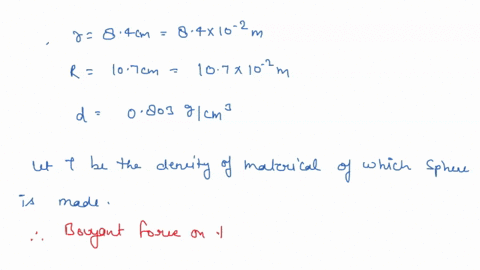 r = 8.4cm = 8.4 x 10⁻² m
R = 10.7cm = 10.7 x 10⁻² m
d = 0.803 g/cm³
Let ρ be the density of material of which sphere
is made.
∴ Bouyant force on